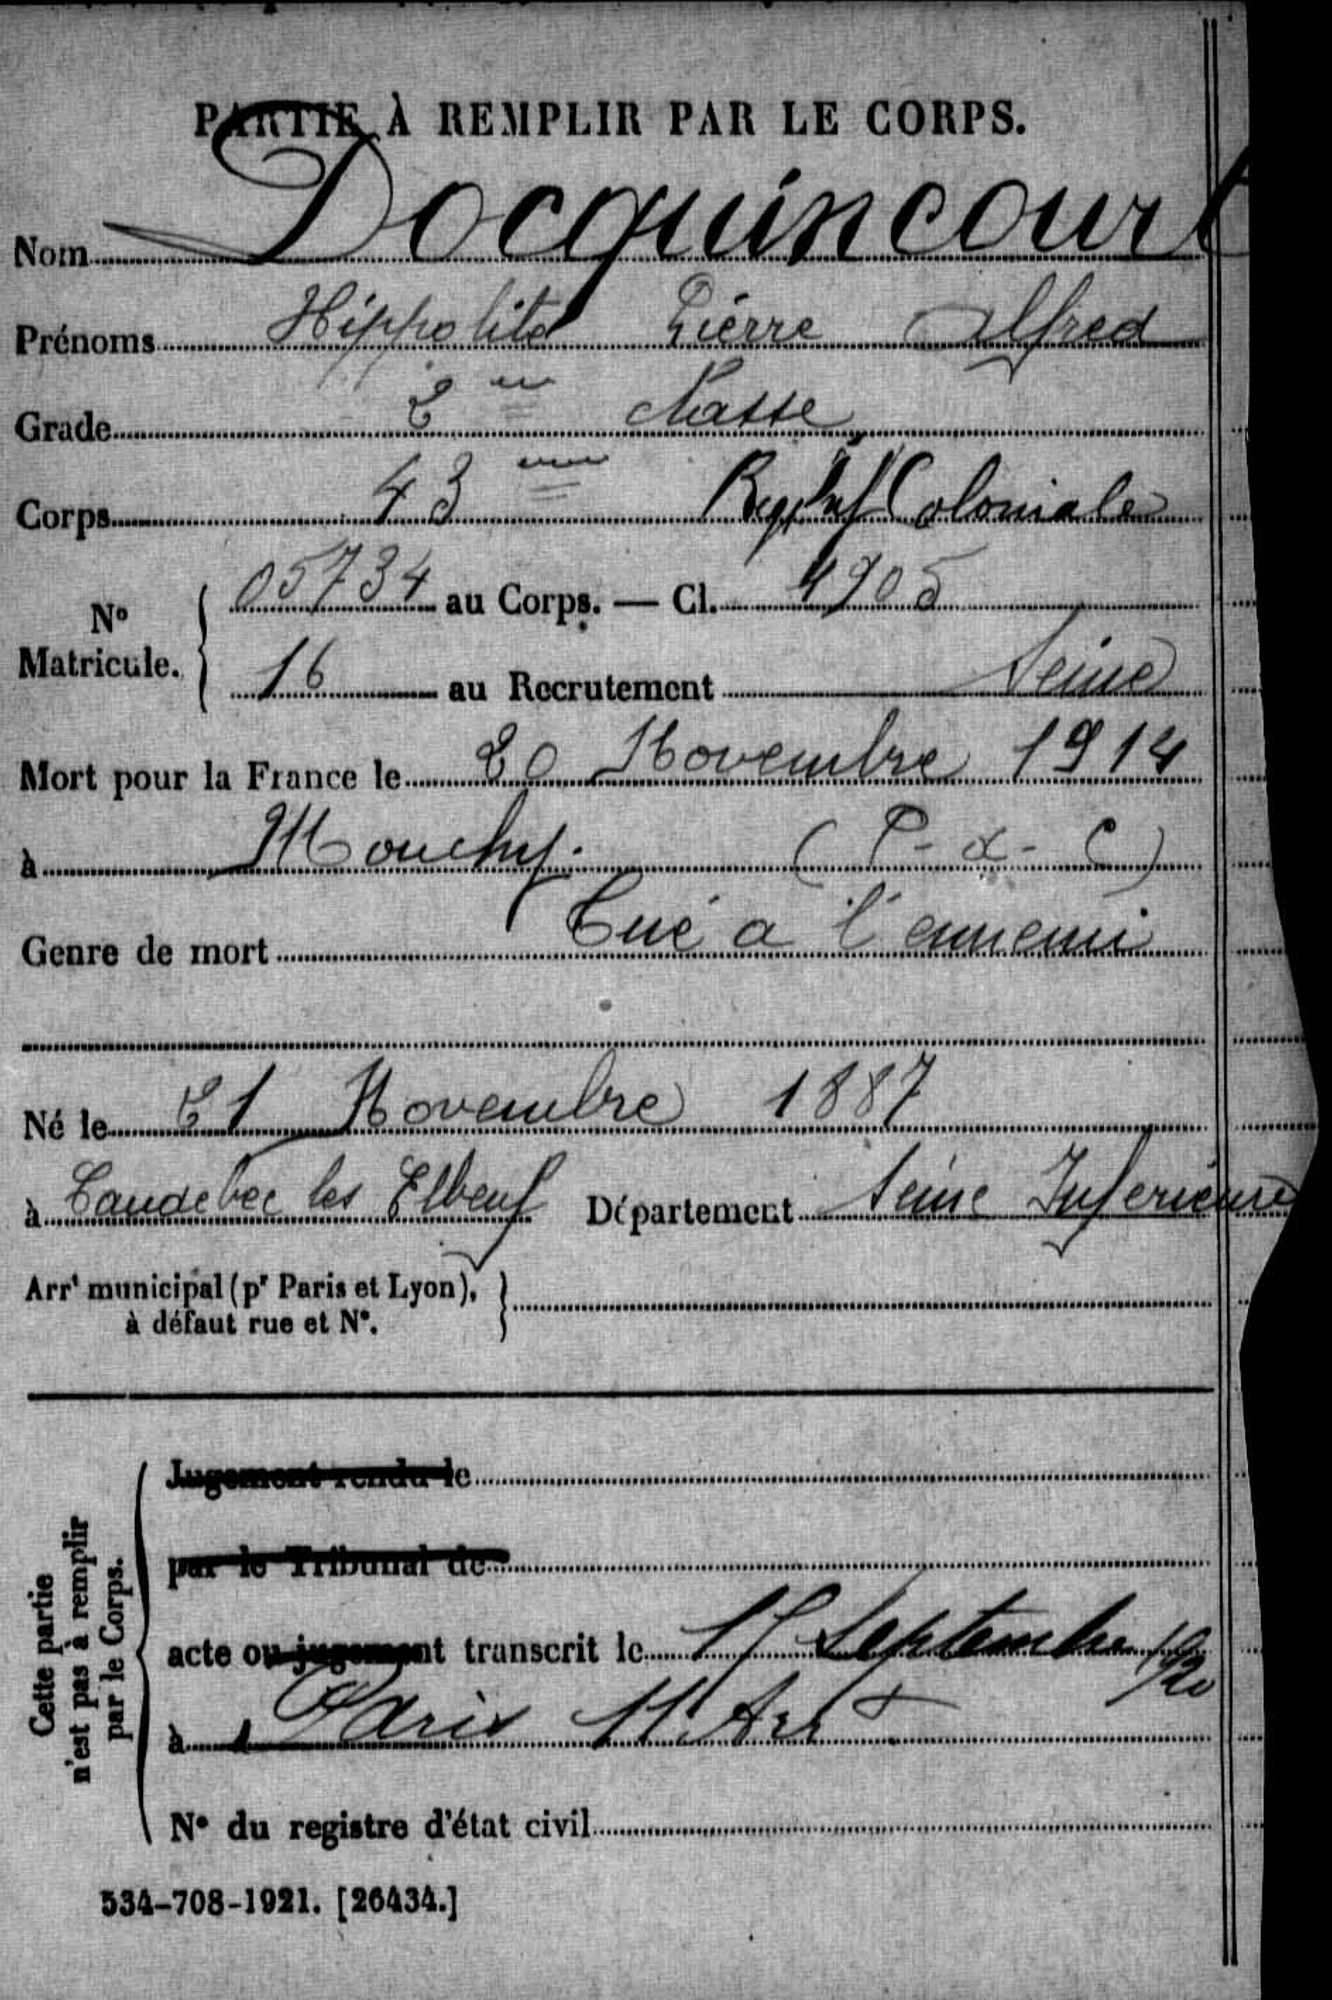 PARTIE À REMPLIR PAR LE CORPS.
Nom Docquincourt
Prénoms Hippolite Pierre Alfred
Grade 2me Classe
Corps 43eme Regt Inf Coloniale
No Matricule. 05734 au Corps. — Cl. 1905
16 au Recrutement Seine
Mort pour la France le 20 Novembre 1914
à Mouchy. (P-d-C)
Genre de mort Tué a l'ennemi
Né le 21 Novembre 1887
à Caudebec les Elbeuf Département Seine Inferieure
Arrt municipal (pr Paris et Lyon), à défaut rue et N°.
Cette partie n'est pas à remplir par le Corps.
Jugement rendu le
par le Tribunal de
acte ou jugement transcrit le 17 Septembre 1920
à Paris 11e Arrt
N° du registre d'état civil
534-708-1921. [26434.]